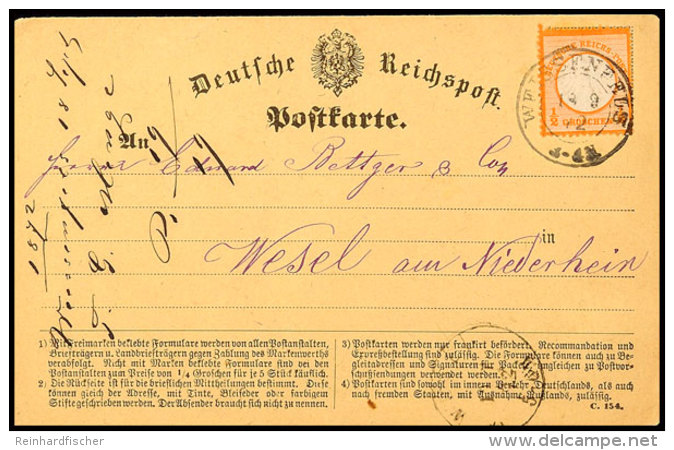 Deutsche Reichspost.
Postkarte.
An
Herrn Eduard Bettger & Con
in
Wesel am Niederhein
1872
P. 19/9
WEISSENFELS
18 9
72
½ GROSCHEN
1) Mit Freimarken beklebte Formulare werden von allen Postanstalten,
Briefträgern u. Landbriefträgern gegen Zahlung des Markenwerths
verabfolgt. Nicht mit Marken beklebte Formulare sind bei den
Postanstalten zum Preise von 1/4 Groschen für je 5 Stück käuflich.
2) Die Rückseite ist für die brieflichen Mittheilungen bestimmt. Diese
können gleich der Adresse, mit Tinte, Bleifeder oder farbigem
Stifte geschrieben werden. Der Absender braucht sich nicht zu nennen.
3) Postkarten werden nur frankirt befördert. Recommandation und
Expreßbestellung sind zulässig. Die Formulare können auch zu Be-
gleitadressen und Signaturen für Packete, ingleichen zu Postvor-
schußsendungen verwendet werden.
4) Postkarten sind sowohl im innern Verkehr Deutschlands, als auch
nach fremden Staaten, mit Ausnahme Rußlands, zulässig.
C. 154.
Reinhardfischer
delcampe.net